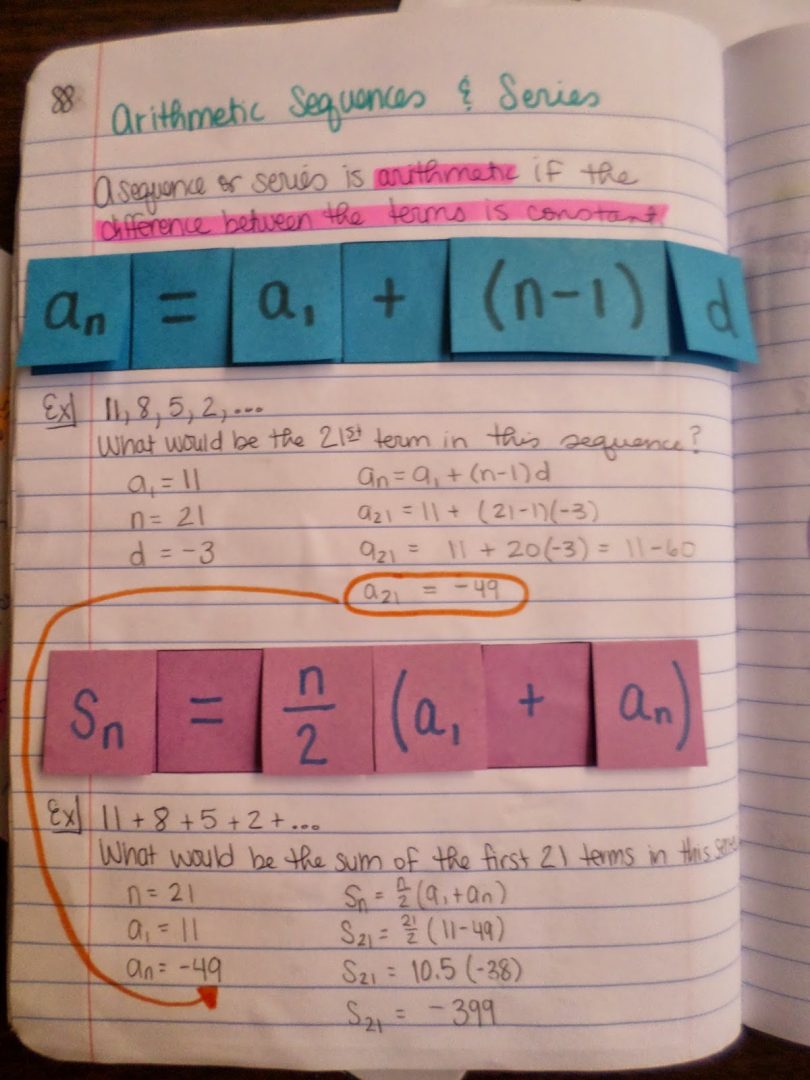 88
Arithmetic Sequences & Series
A sequence or series is arithmetic if the
difference between the terms is constant.
aₙ = a₁ + (n-1) d
Ex) 11, 8, 5, 2, ...
What would be the 21st term in this sequence?
a₁ = 11 aₙ = a₁ + (n-1)d
n = 21 a₂₁ = 11 + (21-1)(-3)
d = -3 a₂₁ = 11 + 20(-3) = 11-60
a₂₁ = -49
Sₙ = n/2 (a₁ + aₙ)
Ex) 11 + 8 + 5 + 2 + ...
What would be the sum of the first 21 terms in this
n = 21 Sₙ = n/2 (a₁ + aₙ)
a₁ = 11 S₂₁ = 21/2 (11-49)
aₙ = -49 S₂₁ = 10.5 (-38)
S₂₁ = -399